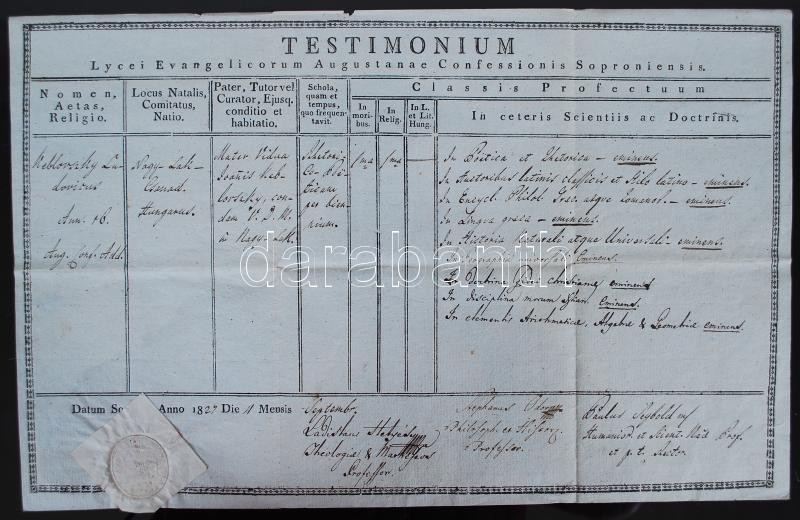 TESTIMONIUM
Lycei Evangelicorum Augustanae Confessionis Soproniensis.
Nomen,
Aetas,
Religio.
Locus Natalis,
Comitatus,
Natio.
Pater, Tutor vel
Curator, Ejusq.
conditio et
habitatio.
Schola,
quam et
tempus,
quo frequen-
tavit.
Classis Profectuum
In
mori-
bus.
In
Relig.
In L.
et Lit.
Hung.
In ceteris Scientiis ac Doctrinis.
Keblovszky Lu-
dovicus
Ann. 16.
Aug. Conf. Add.
Nagy-Lak-
Csanad.
Hungarus.
Mater Vidua
Joanis Keb-
lovszky, con-
dam V. D. M.
in Nagy-Lak.
Rhetoric.
Co-Poë-
ticam
per bien-
nium.
1ma
1ma
In Poëtica et Rhetorica – eminens.
In Auctoribus latinis classicis et Stilo latino – eminens.
In Encycl. Philol. Graec. atque Romanor. – eminens.
In Lingua graeca – eminens.
In Historia Naturali atque Universali – eminens.
In Geographia Universali Eminens.
In Doctrina Relig. Christianae eminens
In disciplina morum Christ. Eminens.
In elementis Arithmeticae, Algebrae & Geometriae eminens.
darabanth
Datum So Anno 1827 Die 4 Mensis Septembr.
Ladislaus
Theologiae &
Professor.
Stephanus
Philosoph. et
Professor.
Paulus Seybold
Humanior. et Prof.
et p. t. Rector